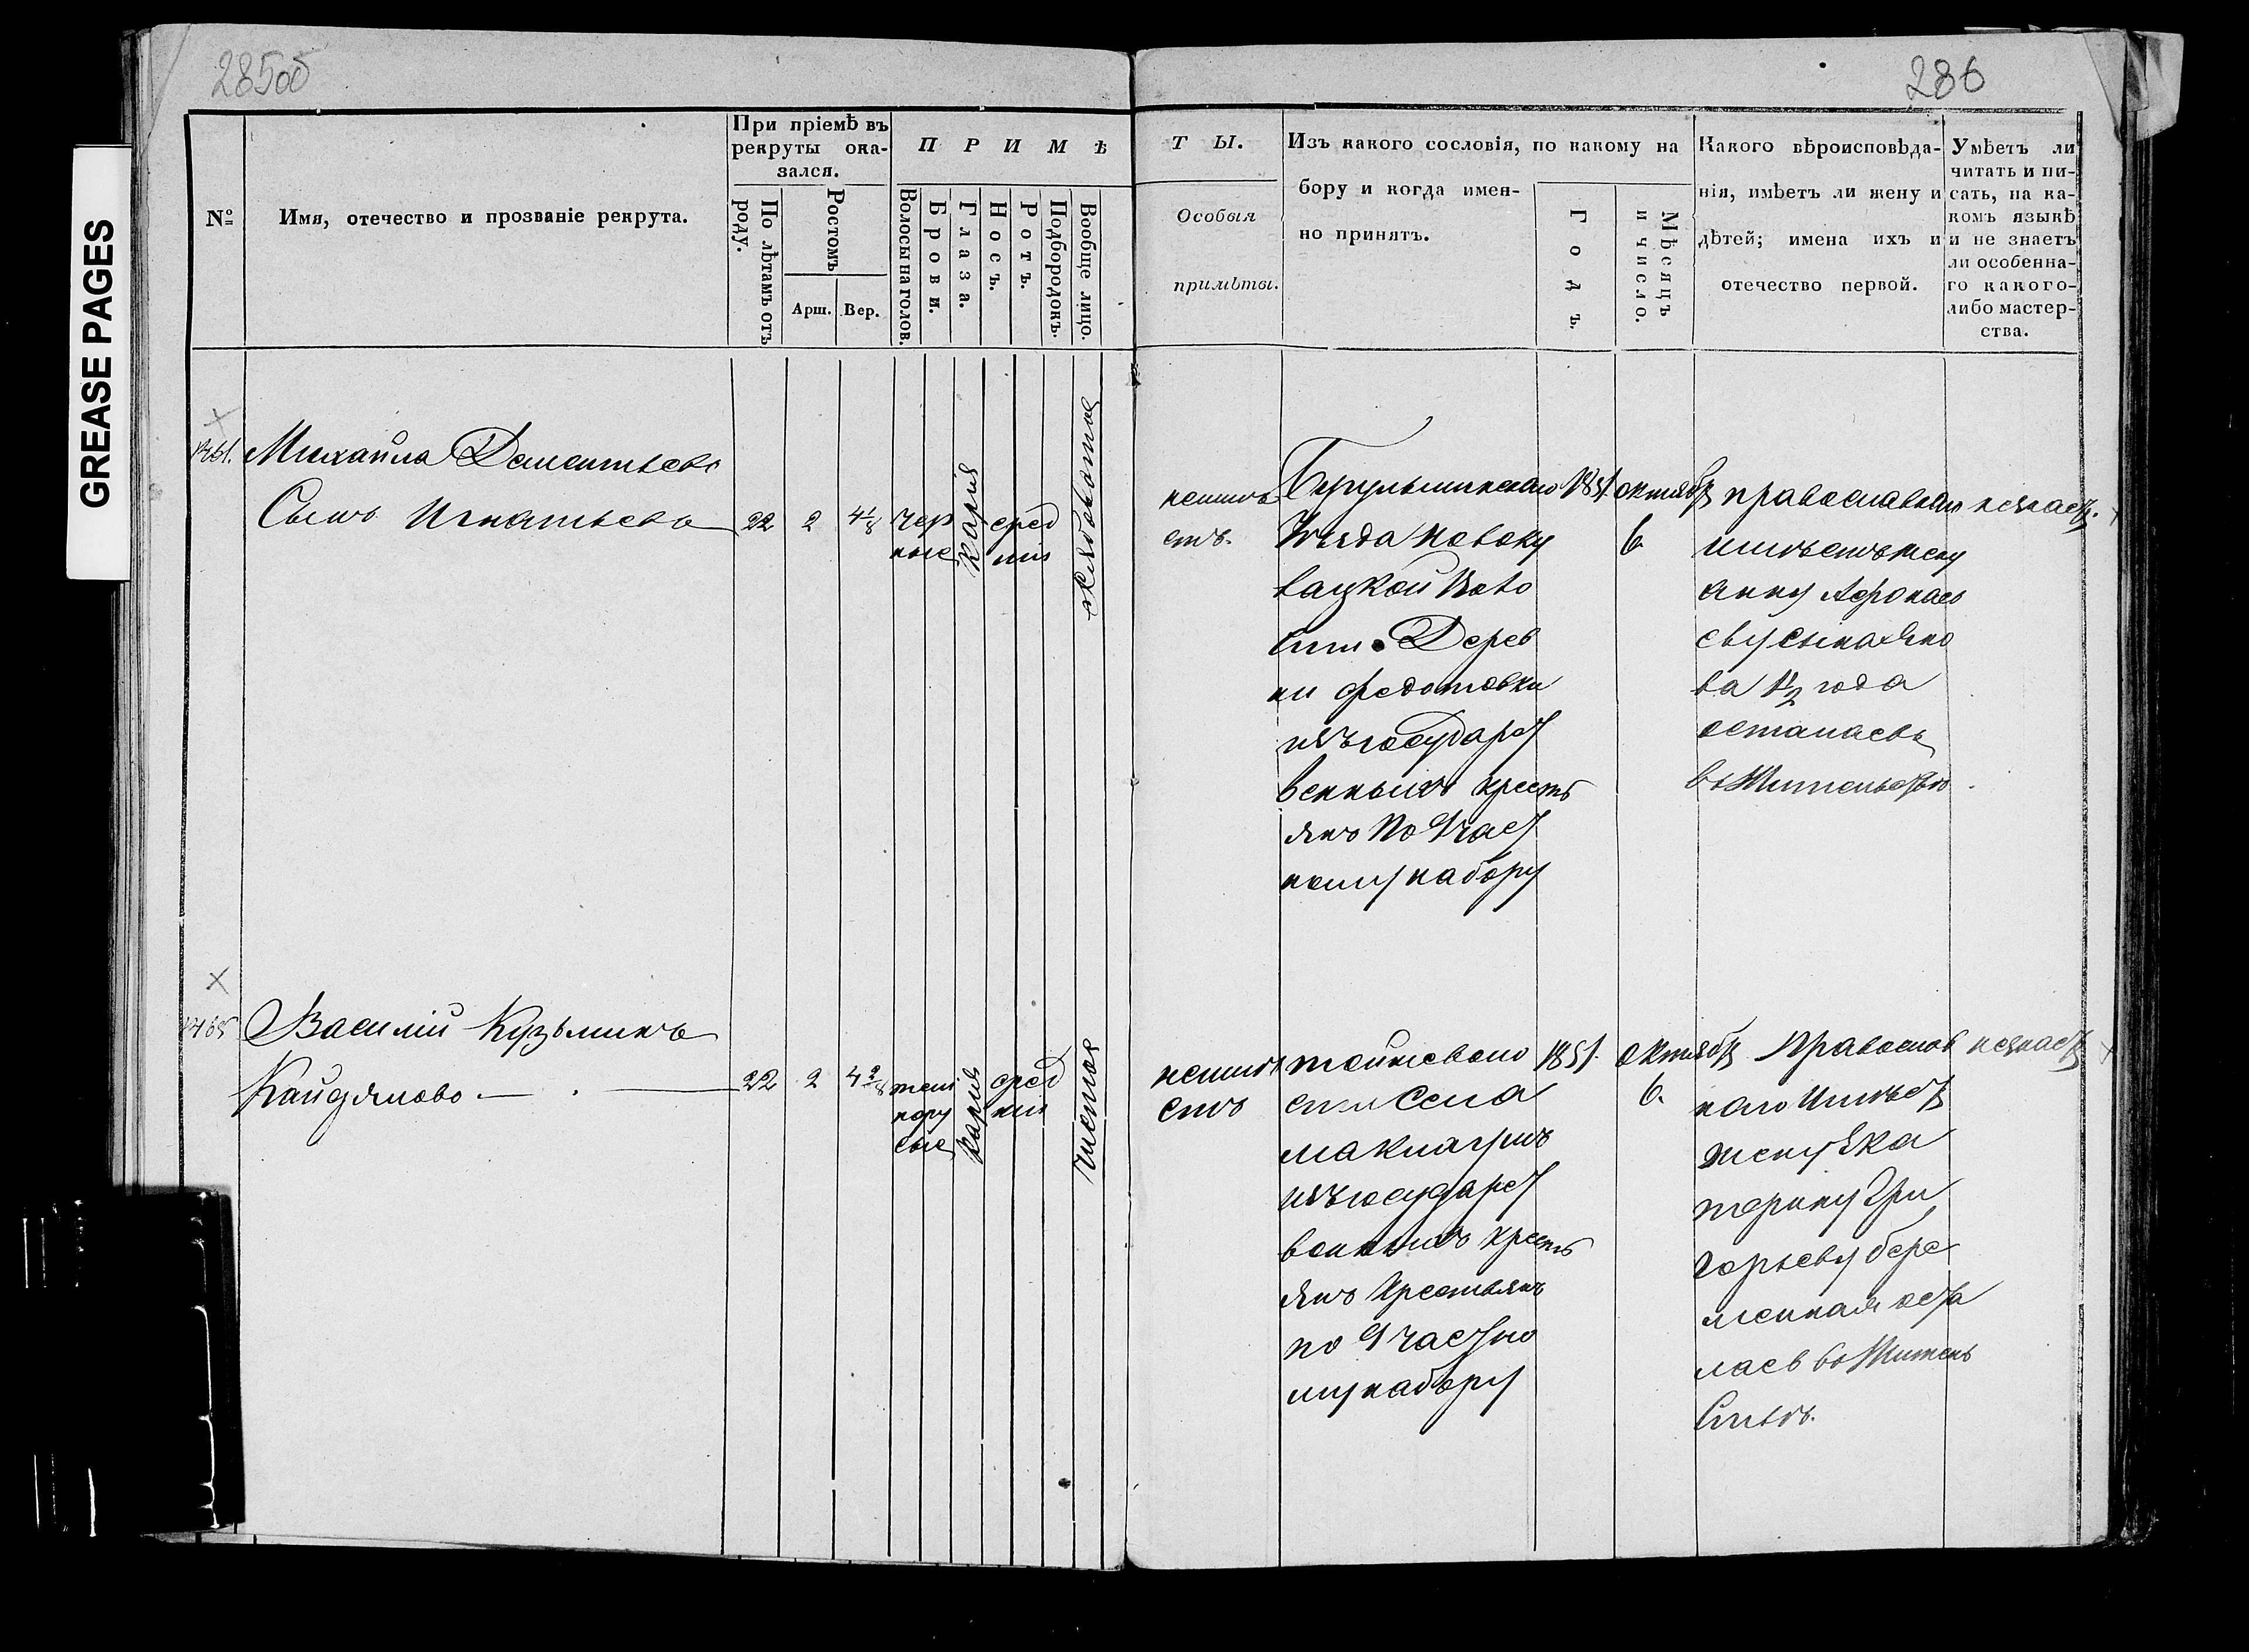 GREASE PAGES
285об
286
№
Имя, отечество и прозваніе рекрута.
При пріемѣ въ
рекруты ока-
зался.
По лѣтамъ отъ
роду.
Ростомъ
Арш.
Вер.
П Р И М Ѣ
Волосы на голов.
Брови.
Глаза.
Носъ.
Ротъ.
Подбородокъ.
Вообще лицо.
Т Ы.
Особыя
примѣты.
Изъ какого сословія, по какому на
бору и когда имен-
но принятъ.
Годъ.
Мѣсяцъ
и число.
Какого вѣроисповѣда-
нія, имѣетъ ли жену и
дѣтей; имена ихъ и
отечество первой.
Умѣетъ ли
читать и пи-
сать, на ка-
комъ языкѣ
и не знаетъ
ли особенна-
го какого-
либо мастер-
ства.
Михайла Дементьевъ
Сынъ Игнатьевъ
22
2
4 1/8
чер
ные
карія
сред
ніи
неимѣ
етъ.
уѣзда
воло
сти Дерев
ни Федотовки
изъ государст
венныхъ кресть
янъ По 9 част
ному набору
1851.
октября
6
православнаго
имѣетъ жену
Анну Афонась
еву сына Яко
ва 1 1/2 года
осталась
въ жительствѣ
незнает.
Василій Кузьминъ
22
2
4 2/8
темн
ору
сые
карія
сред
ніи
чистое
неимѣ
етъ
села
изъ государст
венныхъ кресть
янъ Крестьянъ
по 9 частно
му набору
1851.
октября
6.
Православ
наго Имѣет
жену Ека
терину Гри
горьеву бере
менная оста
лась въ житель
ствѣ.
незнает